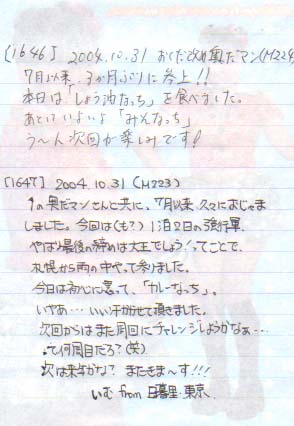 [1646] 2004.10.31 おくだ改め奥たマン(M224)
7月以来、3か月ぶりに参上!!
本日は「しょう油なっち」を食べました。
あとはいよいよ「みそなっち」
う〜ん次回が楽しみです!
[1647] 2004.10.31 (M223)
↑の奥だマンさんと共に、7月以来久々におじゃま
しました。今回は(も?)1泊2日の強行軍。
やはり最後の締めは大王でしょう!ってことで、
札幌から雨の中やって参りました。
今日は初心に戻って、「カレーなっち」。
いやぁ…いい汗かかせて頂きました。
次回からはまた周回にチャレンジしようかなぁ…
って何周目だろ?(笑)
次は来年かな? またきま〜す!!!
いむ from 日暮里・東京